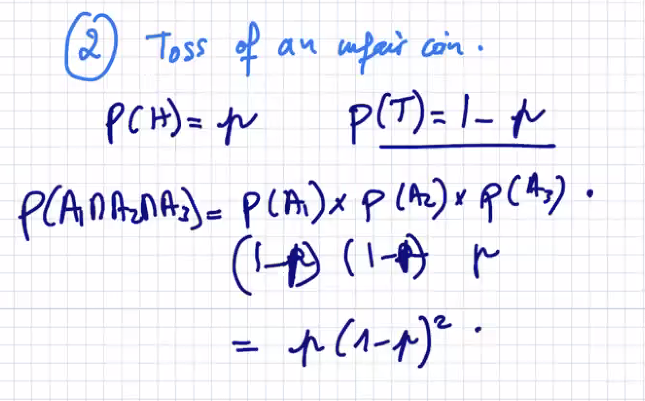 ② Toss of an unfair coin.
P(H) = p P(T) = 1 - p
P(A₁∩A₂∩A₃) = P(A₁) × P(A₂) × P(A₃).
(1-p) (1-p) p
= p(1-p)².